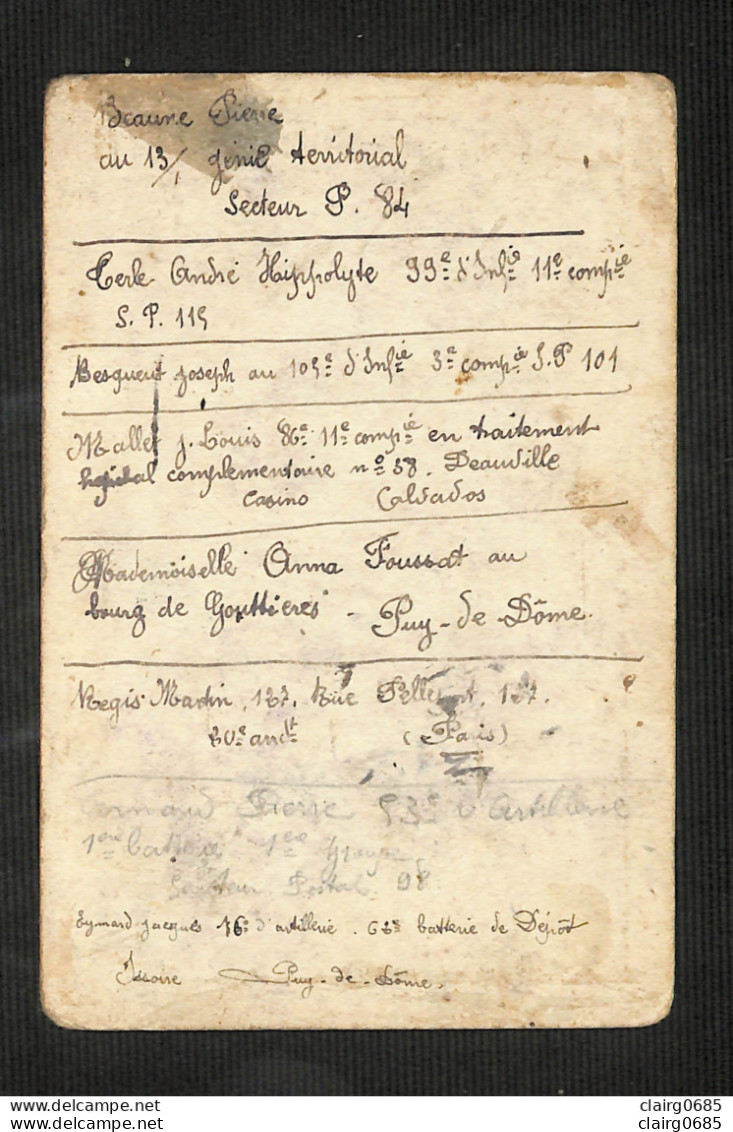 Beaune Pierre
au 13/1 génie territorial
Secteur P. 84
Terle André Hippolyte 99e d'Infie 11e compie
S. P. 115
Besqueut Joseph au 105e d'Infie 3e compie S.P 101
Mallet J. Louis 86e 11e compie en traitement
hopital complementaire no 58. Deauville
Casino Calvados
Mademoiselle Anna Foussat au
bourg de Gouttières - Puy-de-Dôme.
Regis Martin, 127, Rue 127.
20e andt (Paris)
Pierre 53e d'Artillerie
1ère batterie
Secteur Postal 98
Eymard Jacques 16e d'artillerie. 62e batterie de Dépôt
Issoire Puy-de-Dôme.
clairg0685
clairg0685
www.delcampe.net